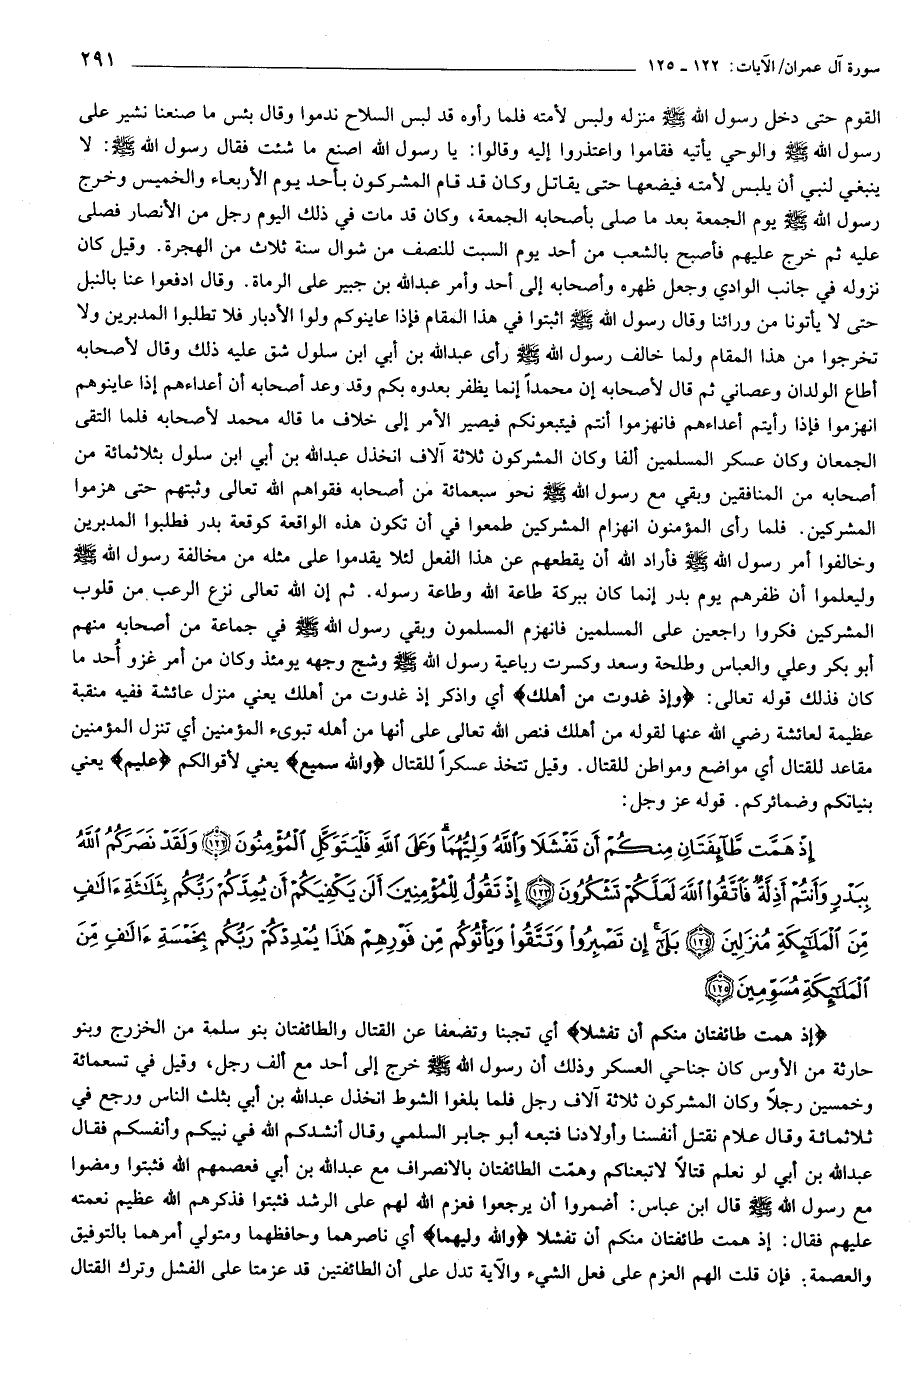 سورة آل عمران/الآيات: ١٢٢ ـ ١٢٥ ٢٩١
القوم حتى دخل رسول الله ﷺ منزله ولبس لأمته فلما رأوه قد لبس السلاح ندموا وقال بئس ما صنعنا نشير على
رسول الله ﷺ والوحي يأتيه فقاموا واعتذروا إليه وقالوا: يا رسول الله اصنع ما شئت فقال رسول الله ﷺ: لا
ينبغي لنبي أن يلبس لأمته فيضعها حتى يقاتل وكان قد قام المشركون بأحد يوم الأربعاء والخميس وخرج
رسول الله ﷺ يوم الجمعة بعد ما صلى بأصحابه الجمعة، وكان قد مات في ذلك اليوم رجل من الأنصار فصلى
عليه ثم خرج عليهم فأصبح بالشعب من أحد يوم السبت للنصف من شوال سنة ثلاث من الهجرة. وقيل كان
نزوله في جانب الوادي وجعل ظهره وأصحابه إلى أحد وأمر عبدالله بن جبير على الرماة. وقال ادفعوا عنا بالنبل
حتى لا يأتونا من ورائنا وقال رسول الله ﷺ اثبتوا في هذا المقام فإذا عاينوكم ولوا الأدبار فلا تطلبوا المدبرين ولا
تخرجوا من هذا المقام ولما خالف رسول الله ﷺ رأى عبدالله بن أبي ابن سلول شق عليه ذلك وقال لأصحابه
أطاع الولدان وعصاني ثم قال لأصحابه إن محمداً إنما يظفر بعدوه بكم وقد وعد أصحابه أن أعداءهم إذا عاينوهم
انهزموا فإذا رأيتم أعداءهم فانهزموا أنتم فيتبعونكم فيصير الأمر إلى خلاف ما قاله محمد لأصحابه فلما التقى
الجمعان وكان عسكر المسلمين ألفا وكان المشركون ثلاثة آلاف انخذل عبدالله بن أبي ابن سلول بثلاثمائة من
أصحابه من المنافقين وبقي مع رسول الله ﷺ نحو سبعمائة من أصحابه فقواهم الله تعالى وثبتهم حتى هزموا
المشركين. فلما رأى المؤمنون انهزام المشركين طمعوا في أن تكون هذه الواقعة كوقعة بدر فطلبوا المدبرين
وخالفوا أمر رسول الله ﷺ فأراد الله أن يقطعهم عن هذا الفعل لئلا يقدموا على مثله من مخالفة رسول الله ﷺ
وليعلموا أن ظفرهم يوم بدر إنما كان ببركة طاعة الله وطاعة رسوله. ثم إن الله تعالى نزع الرعب من قلوب
المشركين فكروا راجعين على المسلمين فانهزم المسلمون وبقي رسول الله ﷺ في جماعة من أصحابه منهم
أبو بكر وعلي والعباس وطلحة وسعد وكسرت رباعية رسول الله ﷺ وشج وجهه يومئذ وكان من أمر غزو أُحد ما
كان فذلك قوله تعالى: ﴿وإذ غدوت من أهلك﴾ أي واذكر إذ غدوت من أهلك يعني منزل عائشة ففيه منقبة
عظيمة لعائشة رضي الله عنها لقوله من أهلك فنص الله تعالى على أنها من أهله تبوىء المؤمنين أي تنزل المؤمنين
مقاعد للقتال أي مواضع ومواطن للقتال. وقيل تتخذ عسكراً للقتال ﴿والله سميع﴾ يعني لأقوالكم ﴿عليم﴾ يعني
بنياتكم وضمائركم. قوله عز وجل:
إِذْ هَمَّت طَّآئِفَتَانِ مِنكُمْ أَن تَفْشَلَا وَٱللَّهُ وَلِيُّهُمَا ۗ وَعَلَى ٱللَّهِ فَلْيَتَوَكَّلِ ٱلْمُؤْمِنُونَ ﴿١٢٢﴾ وَلَقَدْ نَصَرَكُمُ ٱللَّهُ
بِبَدْرٍ وَأَنتُمْ أَذِلَّةٌ ۖ فَٱتَّقُوا۟ ٱللَّهَ لَعَلَّكُمْ تَشْكُرُونَ ﴿١٢٣﴾ إِذْ تَقُولُ لِلْمُؤْمِنِينَ أَلَن يَكْفِيَكُمْ أَن يُمِدَّكُمْ رَبُّكُم بِثَلَـٰثَةِ ءَالَـٰفٍ
مِّنَ ٱلْمَلَـٰٓئِكَةِ مُنزَلِينَ ﴿١٢٤﴾ بَلَىٰٓ ۚ إِن تَصْبِرُوا۟ وَتَتَّقُوا۟ وَيَأْتُوكُم مِّن فَوْرِهِمْ هَـٰذَا يُمْدِدْكُمْ رَبُّكُم بِخَمْسَةِ ءَالَـٰفٍ مِّنَ
ٱلْمَلَـٰٓئِكَةِ مُسَوِّمِينَ ﴿١٢٥﴾
﴿إذ همت طائفتان منكم أن تفشلا﴾ أي تجبنا وتضعفا عن القتال والطائفتان بنو سلمة من الخزرج وبنو
حارثة من الأوس كان جناحي العسكر وذلك أن رسول الله ﷺ خرج إلى أحد مع ألف رجل، وقيل في تسعمائة
وخمسين رجلاً وكان المشركون ثلاثة آلاف رجل فلما بلغوا الشوط انخذل عبدالله بن أبي بثلث الناس ورجع في
ثلاثمائة وقال علام نقتل أنفسنا وأولادنا فتبعه أبو جابر السلمي وقال أنشدكم الله في نبيكم وأنفسكم فقال
عبدالله بن أبي لو نعلم قتالاً لاتبعناكم وهمّت الطائفتان بالانصراف مع عبدالله بن أبي فعصمهم الله فثبتوا ومضوا
مع رسول الله ﷺ قال ابن عباس: أضمروا أن يرجعوا فعزم الله لهم على الرشد فثبتوا فذكرهم الله عظيم نعمته
عليهم فقال: إذ همت طائفتان منكم أن تفشلا ﴿والله وليهما﴾ أي ناصرهما وحافظهما ومتولي أمرهما بالتوفيق
والعصمة. فإن قلت الهم العزم على فعل الشيء والآية تدل على أن الطائفتين قد عزمتا على الفشل وترك القتال